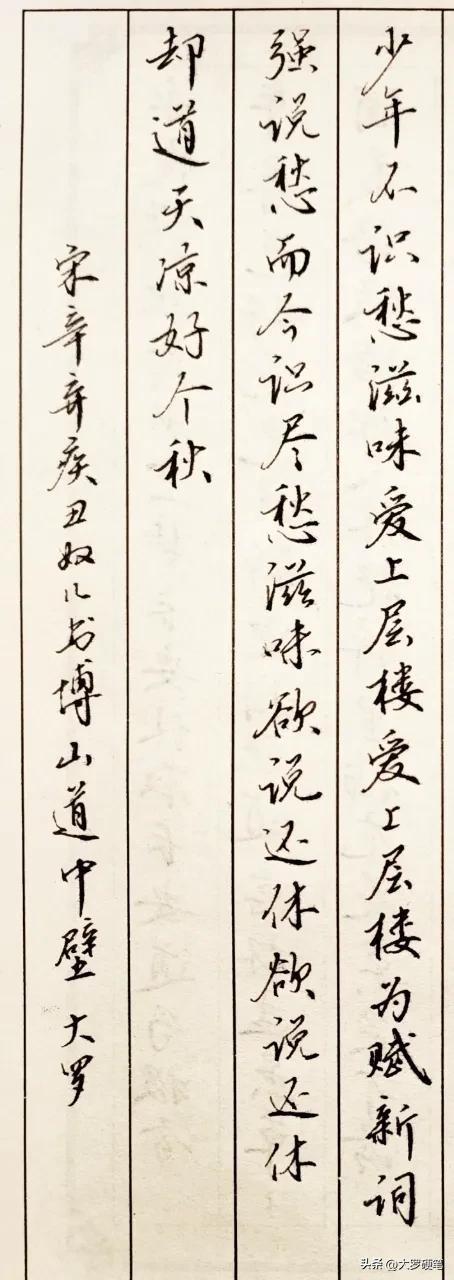 少年不识愁滋味爱上层楼爱上层楼为赋新词
强说愁而今识尽愁滋味欲说还休欲说还休
却道天凉好个秋
宋辛弃疾丑奴儿书博山道中壁 大罗
头条 @大罗硬笔